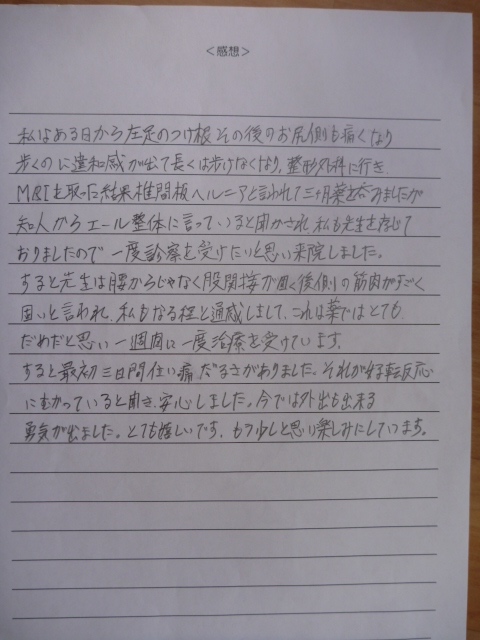 ＜感想＞
私はある日から左足のつけ根その後のお尻側も痛くなり
歩くのに違和感が出て長くは歩けなくなり、整形外科に行き
MRIを取った結果椎間板ヘルニアと言われて三ヶ月薬を飲みましたが
知人からエール整体に言っていると聞かされ私も先生を存じて
おりましたので一度診察を受けたいと思い来院しました。
すると先生は腰からじゃなく股関接が固く後側の筋肉がすごく
固いと言われ、私もなる程と通感しまして、これは薬ではとても
だめだと思い一週間に一度治療を受けています。
すると最初三日間位い痛だるさがありました。それが好転反応
にむかっていると聞き、安心しました。今では外出も出来る
勇気が出ました。とても嬉しいです、もう少しと思い楽しみにしています。